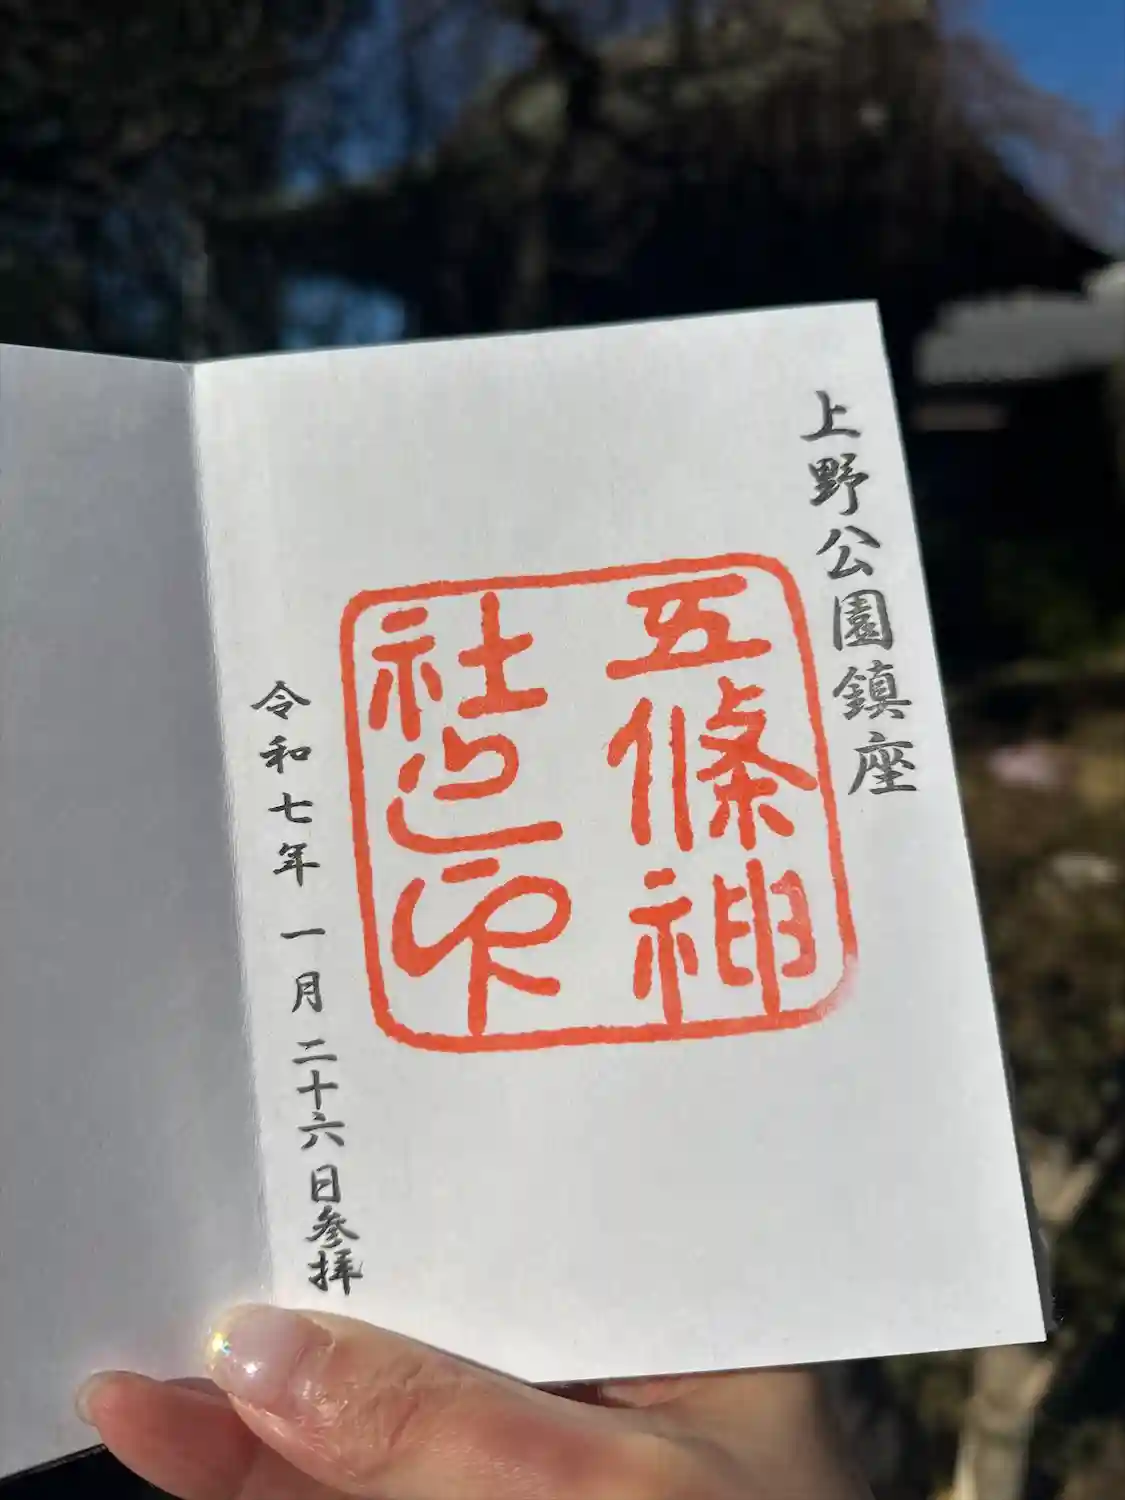 上野公園鎮座
五條神
社之印
令和七年 一月 二十六日参拝